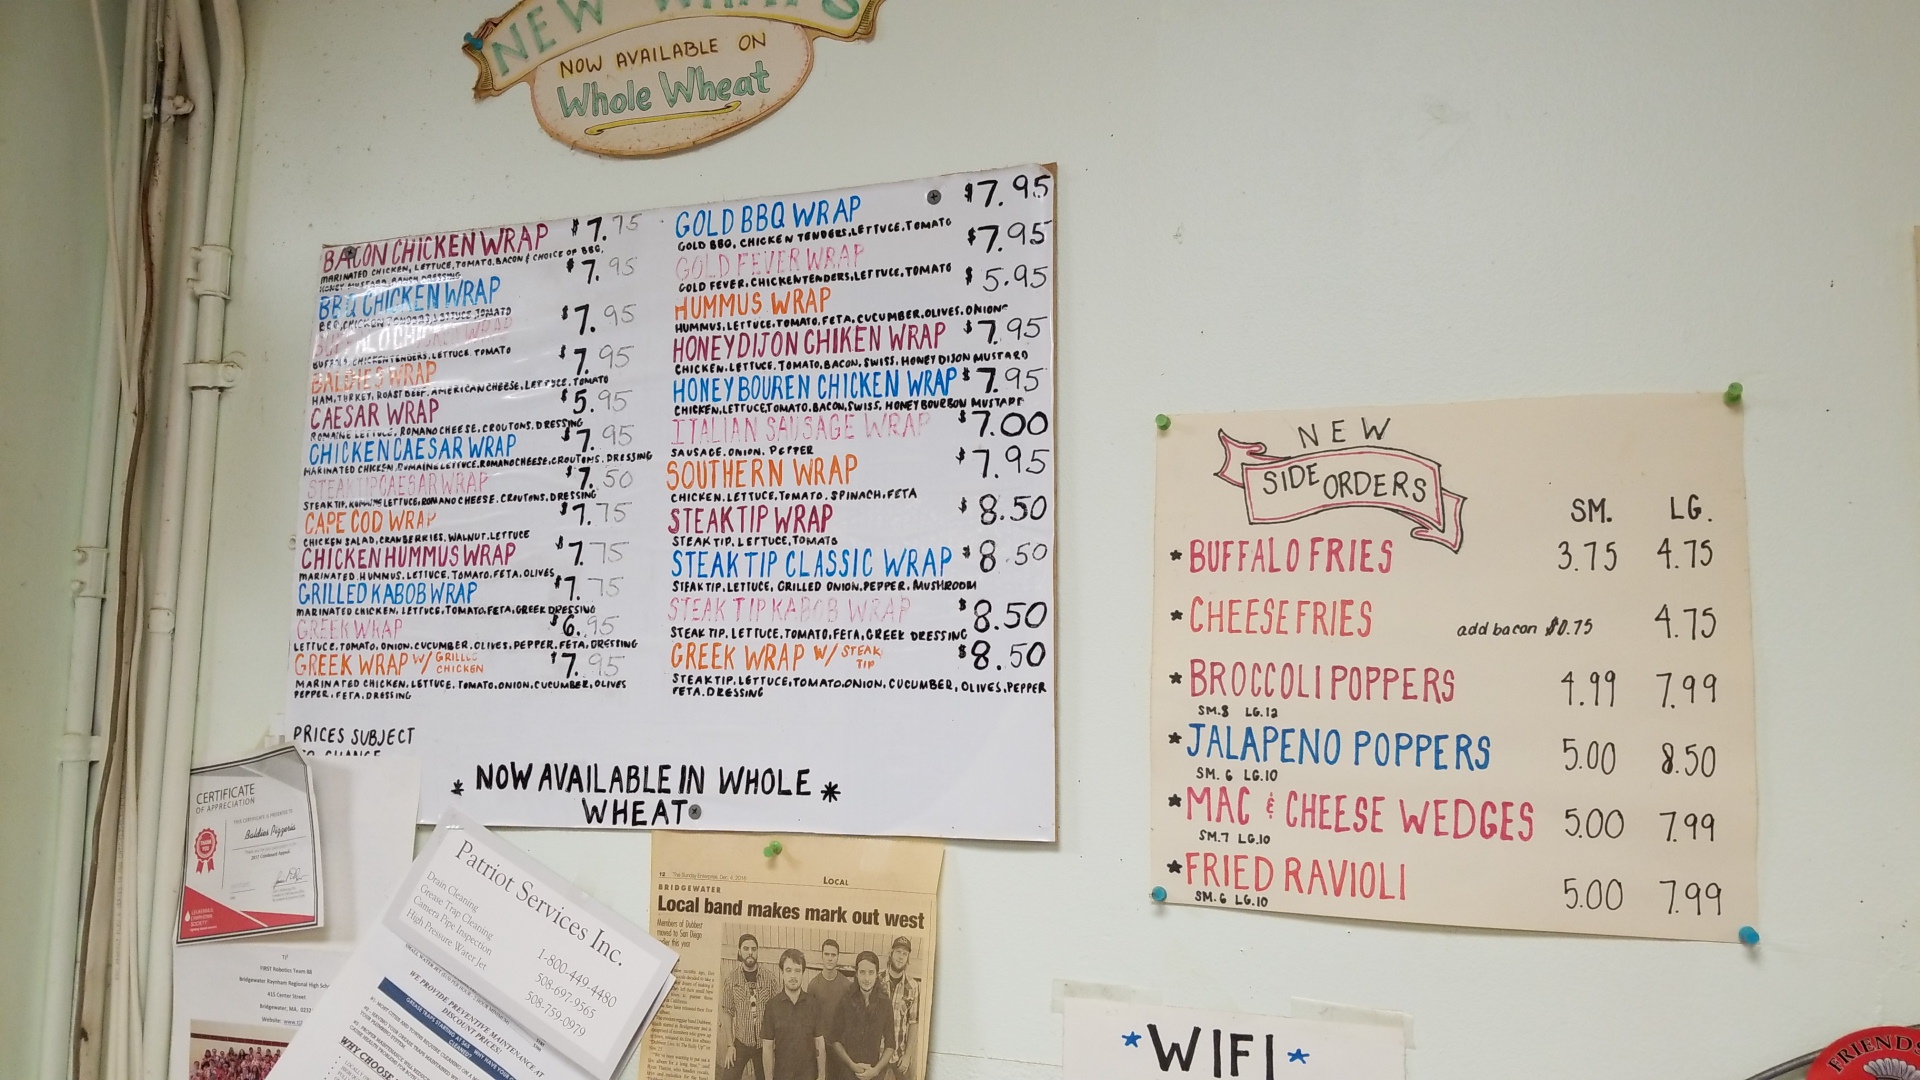 NEW WRAPS
NOW AVAILABLE ON
Whole Wheat
BACON CHICKEN WRAP $7.75
MARINATED CHICKEN, LETTUCE, TOMATO, BACON & CHOICE OF BBQ,
HONEY MUSTARD, RANCH DRESSING
BBQ CHICKEN WRAP $7.95
BBQ, CHICKEN TENDERS, LETTUCE, TOMATO
BUFFALO CHICKEN WRAP $7.95
BUFFALO, CHICKEN TENDERS, LETTUCE, TOMATO
BALDIES WRAP $7.95
HAM, TURKEY, ROAST BEEF, AMERICAN CHEESE, LETTUCE, TOMATO
CAESAR WRAP $5.95
ROMAINE LETTUCE, ROMANO CHEESE, CROUTONS, DRESSING
CHICKEN CAESAR WRAP $7.95
MARINATED CHICKEN, ROMAINE LETTUCE, ROMANO CHEESE, CROUTONS, DRESSING
STEAK TIP CAESAR WRAP $7.50
STEAK TIP, ROMAINE LETTUCE, ROMANO CHEESE, CROUTONS, DRESSING
CAPE COD WRAP $7.75
CHICKEN SALAD, CRANBERRIES, WALNUT, LETTUCE
CHICKEN HUMMUS WRAP $7.75
MARINATED, HUMMUS, LETTUCE, TOMATO, FETA, OLIVES
GRILLED KABOB WRAP $7.75
MARINATED CHICKEN, LETTUCE, TOMATO, FETA, GREEK DRESSING
GREEK WRAP $6.95
LETTUCE, TOMATO, ONION, CUCUMBER, OLIVES, PEPPER, FETA, DRESSING
GREEK WRAP W/ GRILLED CHICKEN $7.95
MARINATED CHICKEN, LETTUCE, TOMATO, ONION, CUCUMBER, OLIVES
PEPPER, FETA, DRESSING
PRICES SUBJECT
TO CHANGE
GOLD BBQ WRAP $7.95
GOLD BBQ, CHICKEN TENDERS, LETTUCE, TOMATO
GOLD FEVER WRAP $7.95
GOLD FEVER, CHICKEN TENDERS, LETTUCE, TOMATO
HUMMUS WRAP $5.95
HUMMUS, LETTUCE, TOMATO, FETA, CUCUMBER, OLIVES, ONIONS
HONEY DIJON CHIKEN WRAP $7.95
CHICKEN, LETTUCE, TOMATO, BACON, SWISS, HONEY DIJON MUSTARD
HONEY BOUREN CHICKEN WRAP $7.95
CHICKEN, LETTUCE, TOMATO, BACON, SWISS, HONEY BOURBON MUSTARD
ITALIAN SAUSAGE WRAP $7.00
SAUSAGE, ONION, PEPPER
SOUTHERN WRAP $7.95
CHICKEN, LETTUCE, TOMATO, SPINACH, FETA
STEAK TIP WRAP $8.50
STEAK TIP, LETTUCE, TOMATO
STEAK TIP CLASSIC WRAP $8.50
STEAK TIP, LETTUCE, GRILLED ONION, PEPPER, MUSHROOM
STEAK TIP KABOB WRAP $8.50
STEAK TIP, LETTUCE, TOMATO, FETA, GREEK DRESSING
GREEK WRAP W/ STEAK TIP $8.50
STEAK TIP, LETTUCE, TOMATO, ONION, CUCUMBER, OLIVES, PEPPER
FETA, DRESSING
* NOW AVAILABLE IN WHOLE *
WHEAT
NEW
SIDE ORDERS
SM. LG.
* BUFFALO FRIES 3.75 4.75
* CHEESE FRIES add bacon $0.75 4.75
* BROCCOLI POPPERS 4.99 7.99
SM.8 LG.12
* JALAPENO POPPERS 5.00 8.50
SM. 6 LG.10
* MAC & CHEESE WEDGES 5.00 7.99
SM.7 LG.10
* FRIED RAVIOLI 5.00 7.99
SM. 6 LG.10
CERTIFICATE
OF APPRECIATION
Baldies Pizzeria
FIRST Robotics Team 88
Bridgewater Raynham Regional High
415 Center Street
Bridgewater, MA.
Website:
Patriot Services Inc.
Drain Cleaning
Grease Trap Cleaning
Camera Pipe Inspection
High Pressure Water Jet
1-800-449-4480
508-697-9565
508-759-0979
WE PROVIDE PREVENTIVE MAINTENANCE AT
DISCOUNT PRICES!
WHY CHOOSE
LOCAL
BRIDGEWATER
Local band makes mark out west
Members of Dubbest
moved to San Diego
this year
*WIFI*
FRIENDS